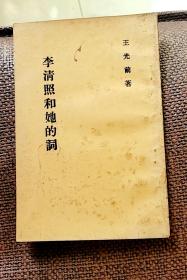 王光前著
李清照和她的詞